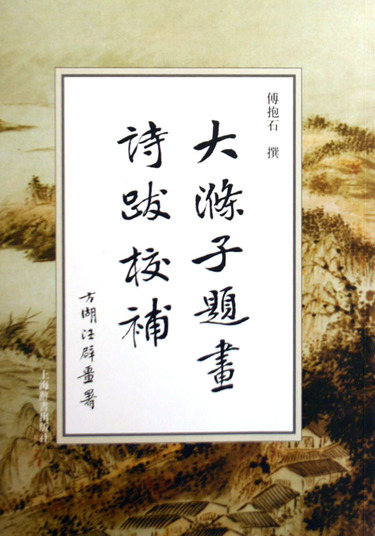 傅抱石 撰
大滌子題畫
詩跋校補
方湖汪辟畺署
上海辭書出版社